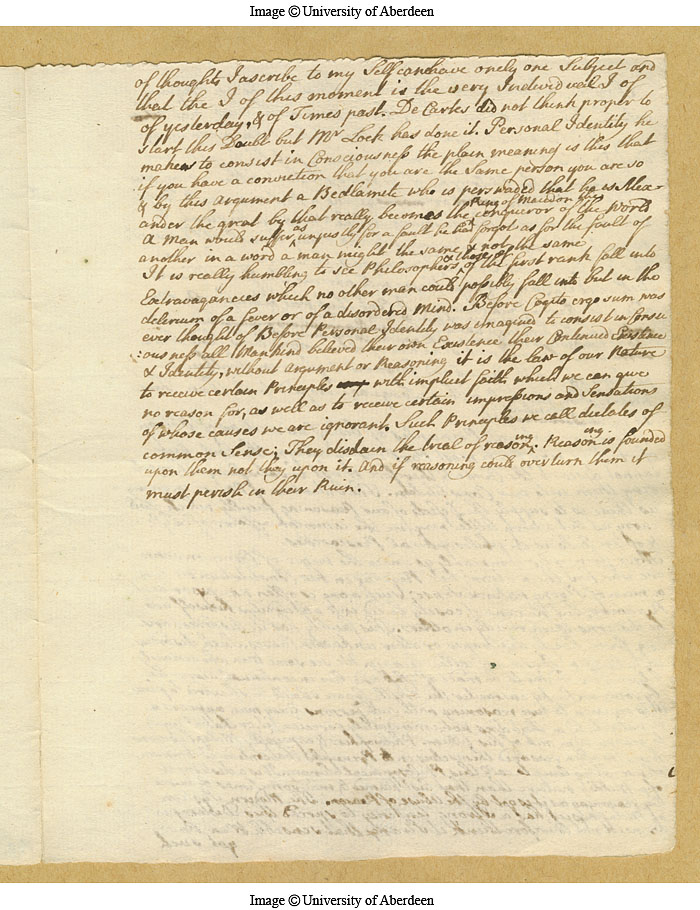 Image © University of Aberdeen
of thoughts I ascribe to my Self can have onely one Subject and
that the I of this moment is the very Individual I of
of yesterday, & of Times past. De Cartes did not think proper to
start this Doubt but Mr Lock has done it. Personal Identity he
makes to consist in Consciousness the plain meaning is this that
if you have a conviction that you are the same person you are so
& by this Argument a Bedlamite who is perswaded that he is Alex-
ander the great by that really becomes the King of Macedon & conqueror of the World
A Man would suffer as unjustly for a fault he had forgot as for the fault of
another in a word a man might the same & not the same
It is really humbling to see Philosophers & those of the first rank fall into
Extravagancies which no other man could possibly fall into but in the
delirium of a fever or of a disordered Mind. Before Cogito ergo sum was
ever thought of Before Personal Identity was imagined to consist in Consci
:ousness all Mankind believed their own Existence their Continued Existence
& Identity, without Argument or Reasoning it is the law of our Nature
to receive certain Principles with implicit faith which we can give
no reason for, as well as to receive certain impressions and Sensations
of whose causes we are ignorant. Such Principles we call dictates of
common Sense; They disdain the trial of reasoning. Reasoning is founded
upon them not they upon it. And if reasoning could overturn them it
must perish in their Ruin.
Image © University of Aberdeen